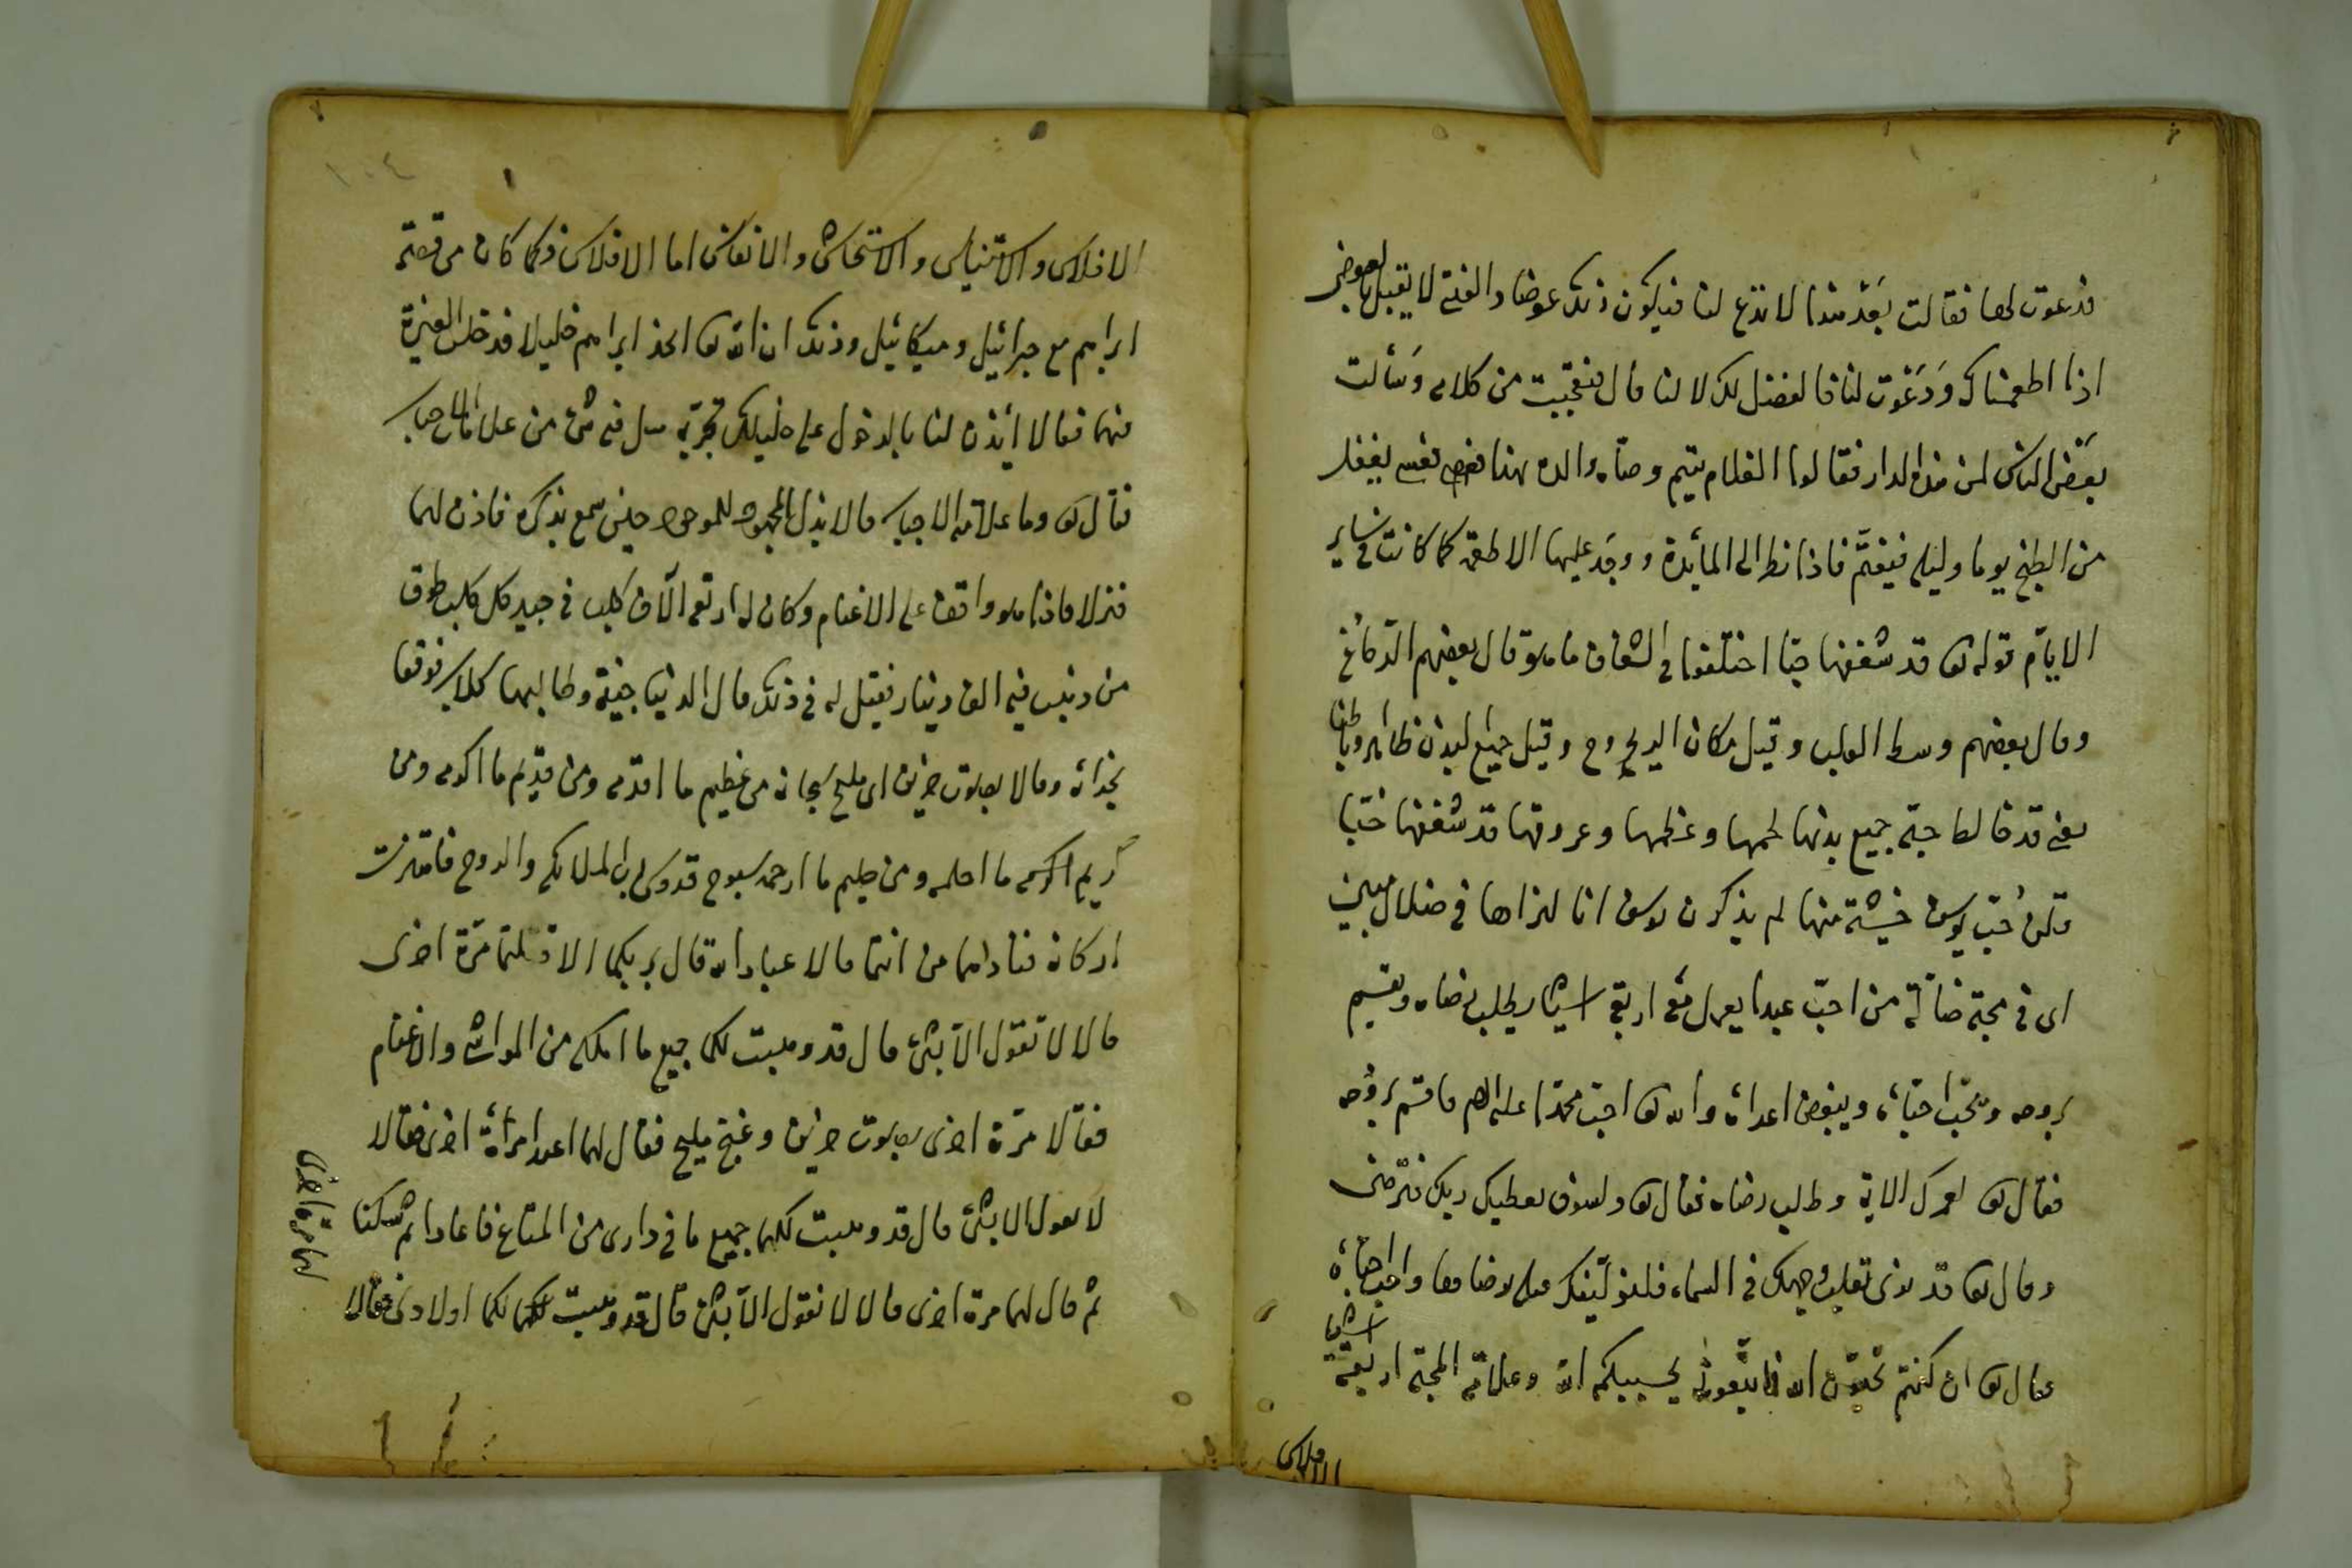 فدعوت لها فقالت بعد هذا لا تدع لنا فيكون ذلك عوضا والفتى لا يقبل العوض
اذا اطعمناك ودعوت لنا فالفضل لك لا لنا قال فتعجبت من كلامه وسألت
بعض الناس لمن هذه الدار فقالوا الغلام يتيم وصاه والده بهذا نفسه
من الطبخ يوما وليلة فيغتم فاذا نظر الى المأيدة ووجد عليها الاطعمة كما كانت في ساير
الايام قوله تع قد شغفها حبا اختلفوا في الشغاف ما هو قال بعضهم الدماغ
وقال بعضهم وسط القلب وقيل مكان الروح وقيل جميع البدن ظاهرا وباطنا
يعنى قد خالط حبه جميع بدنها لحمها وعظمها وعروقها قد شغفها حبا
قلن حب يوسف منها لم يذكرن يوسف انا لنراها في ضلال مبين
اى في محبة ضالة من احب عبدا يعمل معه اربعة اشيا يطلب رضاه ويقسم
بروحه ويحب احباءه ويبغض اعداءه والله تع احب محمدا عليه السلم فاقسم بروحه
فقال تع لعمرك الاية وطلب رضاه فقال تع ولسوف يعطيك ربك فترضى
وقال تع قد نرى تقلب وجهك في السماء فلنولينك قبلة ترضاها واحب احباءه
فقال تع ان كنتم تحبون الله فاتبعونى يحببكم الله وعلامة المحبة اربعة اشيا
الافلاس
١٠٤
الافلاس والاستيناس والانفاس اما الافلاس فكما كان من قصة
ابراهيم مع جبرائيل وميكائيل وذلك ان الله تع اتخذ ابراهيم خليلا فدخل الغيرة
فيهما فقالا أيذن لنا بالدخول على خليلك تجربة هل فيه شئ من علامات الاحباب
فقال تع وما علامة الاحباب قالا بذل المجهود للموجود حين سمع بذكره فاذن لهما
فنزلا فاذا هو واقف على الاغنام وكان له اربعة الآف كلب في جيد كل كلب طوق
من ذهب فيه الف دينار فقيل له في ذلك قال الدنيا جيفة وطالبها كلاب فوقفا
بحذائه وقالا بصوت حزين اى مليح سبحانه من عظيم ما اقدمه ومن قديم ما اكرمه ومن
كريم اكرمه ما احلمه ومن حليم ما ارحمه سبوح قدوس رب الملائكة والروح فاهتزت
اركانه فناداهما من انتما قالا عباد الله قال بربكما الا قلتما مرة اخرى
قالا لا نقول الا بشئ قال قد وهبت لكما جميع ما املكه من المواشى والاغنام
فقالا مرة اخرى بصوت حزين وغنج مليح فقال لهما اعيدا مرأة اخرى فقالا
لا نقول الا بشئ قال قد وهبت لكما جميع ما في دارى من المتاع فاعادا ثم سكتا
ثم قال لهما مرة اخرى قالا لا نقول الا بشئ قال قد وهبت لكما اولادى فقالا
لها مرة اخرى